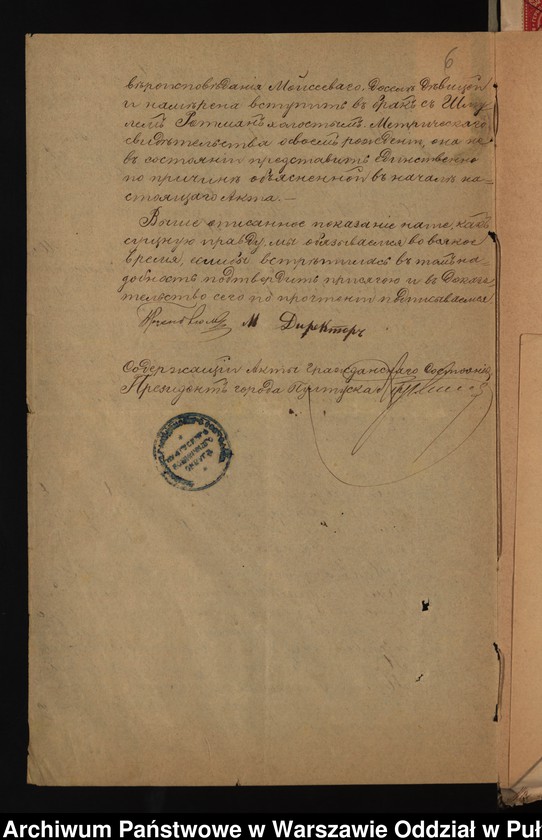 6
вѣроисповѣданія Моисеева. Доселѣ дѣвицей
и намѣрена вступить въ бракъ съ Шму
лемъ Ротманъ холостымъ. Метрическаго
свидѣтельства о своемъ рожденіи, она не
въ состояніи представить единственно
по причинѣ объясненной въ началѣ на-
стоящаго Акта. —
Выше описанное показаніе наше, какъ
сущную правду, мы обязываемся во всякое
время, если бы встрѣтилась въ томъ на
добность подтвердить присягою и въ доказа
тельство сего по прочтеніи подписываемся
М Директоръ
Содержащій Акты Гражданскаго Состоянія
Президентъ города Пултуска
Archiwum Państwowe w Warszawie Oddział w Puł